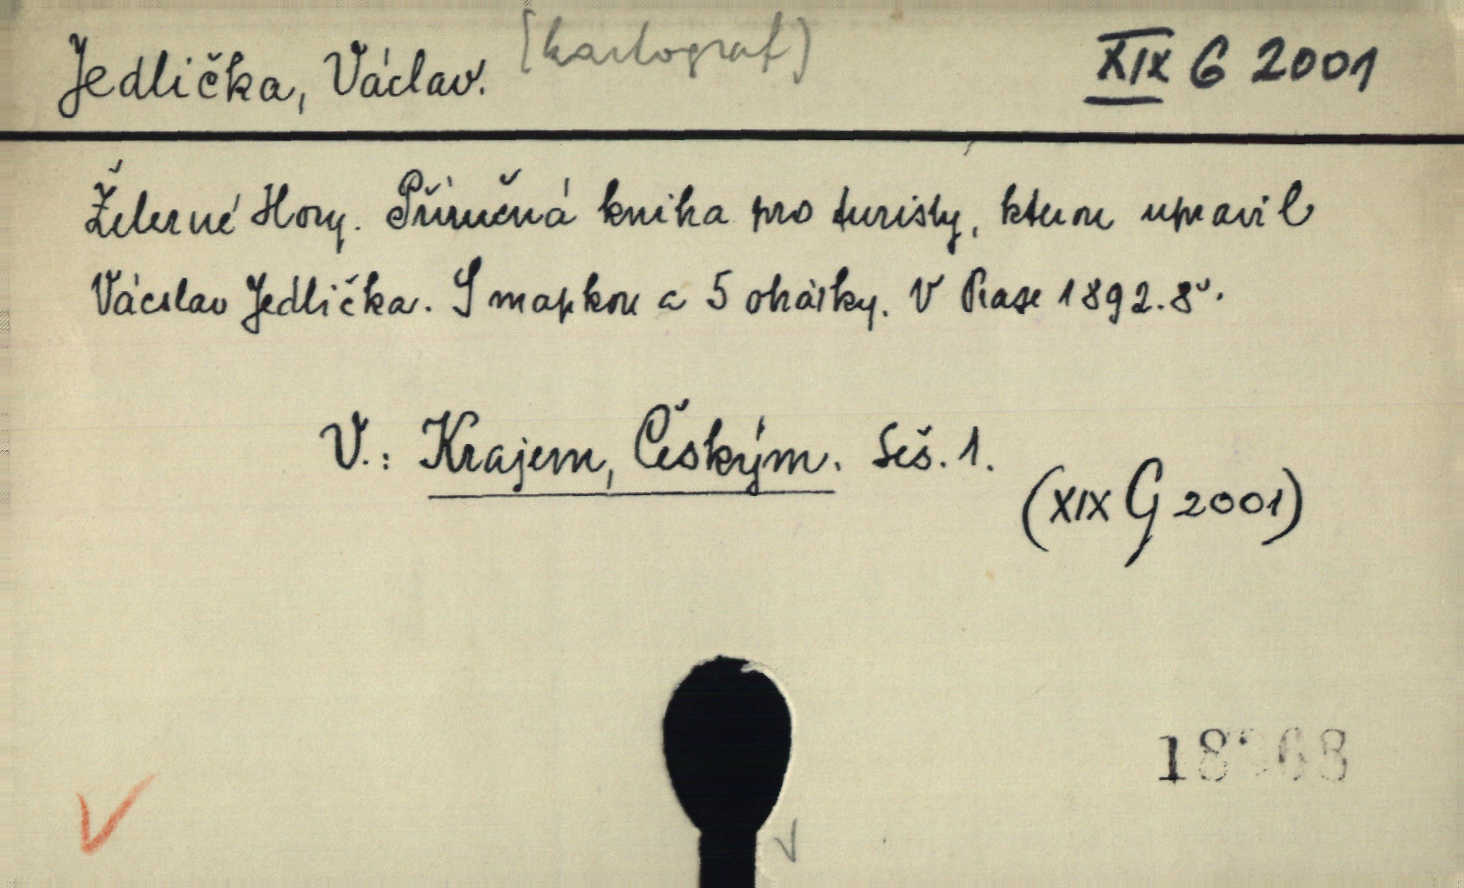 Jedlička, Václav. [kartograf] XIX G 2001
Železné Hory. Příručná kniha pro turisty, kterou upravil
Vácslav Jedlička. S mapkou a 5 obrázky. V Praze 1892. 8°.
V.: Krajem, Českým. Seš. 1.
(XIX G 2001)